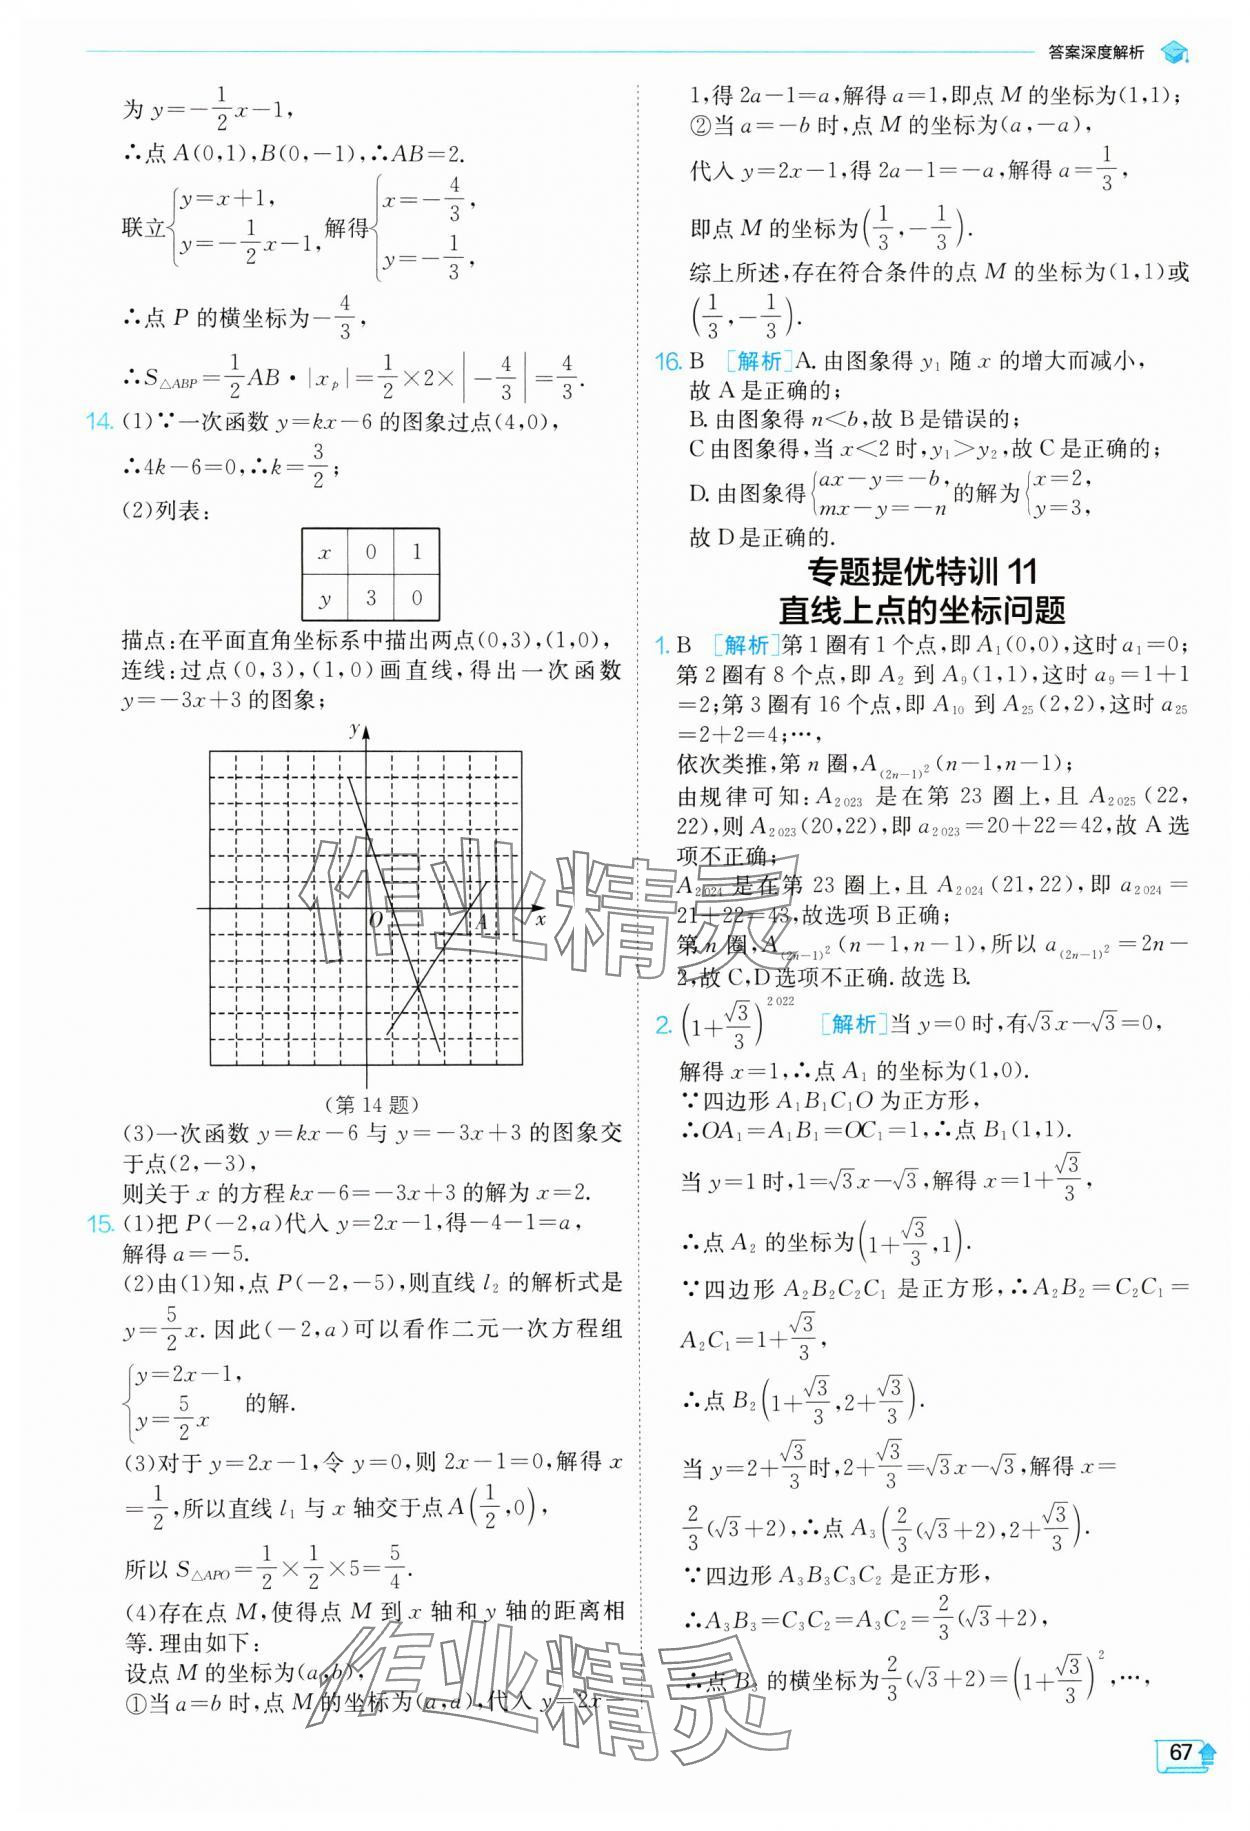 答案深度解析
为 y=-1/2x-1,
∴点 A(0,1),B(0,-1),∴AB=2.
联立{y=x+1, y=-1/2x-1, 解得{x=-4/3, y=-1/3,
∴点 P 的横坐标为-4/3,
∴S△ABP=1/2AB·|xₚ|=1/2×2×|-4/3|=4/3.
14. (1)∵一次函数 y=kx-6 的图象过点(4,0),
∴4k-6=0,∴k=3/2;
(2)列表:
x 0 1
y 3 0
描点:在平面直角坐标系中描出两点(0,3),(1,0),
连线:过点(0,3),(1,0)画直线,得出一次函数
y=-3x+3 的图象;
y
O A x
(第 14 题)
(3)一次函数 y=kx-6 与 y=-3x+3 的图象交
于点(2,-3),
则关于 x 的方程 kx-6=-3x+3 的解为 x=2.
15. (1)把 P(-2,a)代入 y=2x-1,得-4-1=a,
解得 a=-5.
(2)由(1)知,点 P(-2,-5),则直线 l₂ 的解析式是
y=5/2x. 因此(-2,a)可以看作二元一次方程组
{y=2x-1, y=5/2x 的解.
(3)对于 y=2x-1,令 y=0,则 2x-1=0,解得 x
=1/2,所以直线 l₁ 与 x 轴交于点 A(1/2,0),
所以 S△APO=1/2×1/2×5=5/4.
(4)存在点 M,使得点 M 到 x 轴和 y 轴的距离相
等. 理由如下:
设点 M 的坐标为(a,b),
①当 a=b 时,点 M 的坐标为(a,a),代入 y=2x-
1,得 2a-1=a,解得 a=1,即点 M 的坐标为(1,1);
②当 a=-b 时,点 M 的坐标为(a,-a),
代入 y=2x-1,得 2a-1=-a,解得 a=1/3,
即点 M 的坐标为(1/3,-1/3).
综上所述,存在符合条件的点 M 的坐标为(1,1)或
(1/3,-1/3).
16. B [解析]A. 由图象得 y₁ 随 x 的增大而减小,
故 A 是正确的;
B. 由图象得 n<b,故 B 是错误的;
C 由图象得,当 x<2 时,y₁>y₂,故 C 是正确的;
D. 由图象得{ax-y=-b, mx-y=-n 的解为{x=2, y=3,
故 D 是正确的.
专题提优特训 11
直线上点的坐标问题
1. B [解析]第 1 圈有 1 个点,即 A₁(0,0),这时 a₁=0;
第 2 圈有 8 个点,即 A₂ 到 A₉(1,1),这时 a₉=1+1
=2;第 3 圈有 16 个点,即 A₁₀ 到 A₂₅(2,2),这时 a₂₅
=2+2=4;…,
依次类推,第 n 圈,A₍₂ₙ₋₁₎²(n-1,n-1);
由规律可知:A₂₀₂₃ 是在第 23 圈上,且 A₂₀₂₅(22,
22),则 A₂₀₂₃(20,22),即 a₂₀₂₃=20+22=42,故 A 选
项不正确;
A₂₀₂₄ 是在第 23 圈上,且 A₂₀₂₄(21,22),即 a₂₀₂₄=
21+22=43,故选项 B 正确;
第 n 圈,A₍₂ₙ₋₁₎²(n-1,n-1),所以 a₍₂ₙ₋₁₎²=2n-
2,故 C,D 选项不正确. 故选 B.
2. (1+√3/3)²⁰²² [解析]当 y=0 时,有√3x-√3=0,
解得 x=1,∴点 A₁ 的坐标为(1,0).
∵四边形 A₁B₁C₁O 为正方形,
∴OA₁=A₁B₁=OC₁=1,∴点 B₁(1,1).
当 y=1 时,1=√3x-√3,解得 x=1+√3/3,
∴点 A₂ 的坐标为(1+√3/3,1).
∵四边形 A₂B₂C₂C₁ 是正方形,∴A₂B₂=C₂C₁=
A₂C₁=1+√3/3,
∴点 B₂(1+√3/3,2+√3/3).
当 y=2+√3/3时,2+√3/3=√3x-√3,解得 x=
2/3(√3+2),∴点 A₃(2/3(√3+2),2+√3/3).
∵四边形 A₃B₃C₃C₂ 是正方形,
∴A₃B₃=C₃C₂=A₃C₂=2/3(√3+2),
∴点 B₃ 的横坐标为2/3(√3+2)=(1+√3/3)²,…,
67
作业精灵
作业精灵